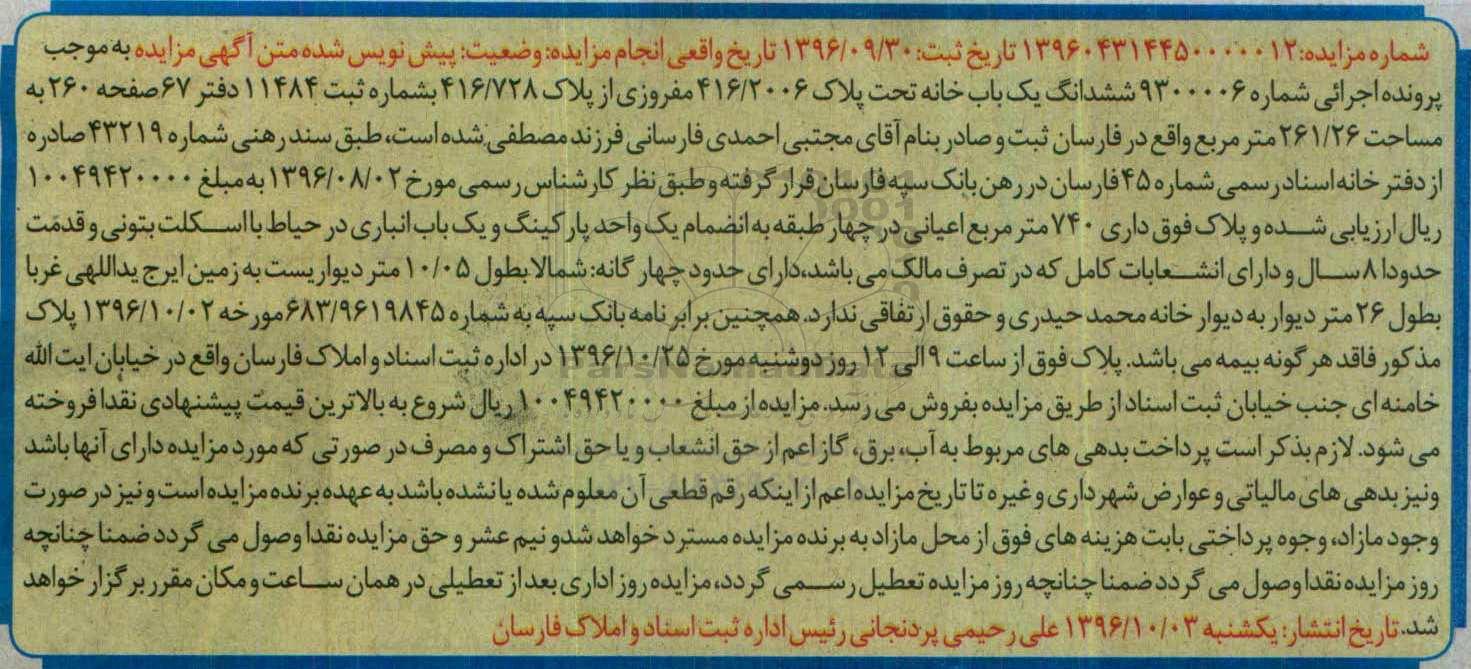 شماره مزایده: ۱۳۹۶۰۴۳۱۴۴۵۰۰۰۰۰۱۲ تاریخ ثبت: ۱۳۹۶/۰۹/۳۰ تاریخ واقعی انجام مزایده: وضعیت: پیش نویس شده متن آگهی مزایده به موجب
پرونده اجرائی شماره ۹۳۰۰۰۰۶ ششدانگ یک باب خانه تحت پلاک ۴۱۶/۲۰۰۶ مفروزی از پلاک ۴۱۶/۷۲۸ بشماره ثبت ۱۱۴۸۴ دفتر ۶۷ صفحه ۲۶۰ به
مساحت ۲۶۱/۲۶ متر مربع واقع در فارسان ثبت و صادر بنام آقای مجتبی احمدی فارسانی فرزند مصطفی شده است، طبق سند رهنی شماره ۴۳۲۱۹ صادره
از دفتر خانه اسناد رسمی شماره ۴۵ فارسان در رهن بانک سپه فارسان قرار گرفته و طبق نظر کارشناس رسمی مورخ ۱۳۹۶/۰۸/۰۲ به مبلغ ۱۰۰۴۹۴۲۰۰۰۰
ریال ارزیابی شده و پلاک فوق داری ۷۴۰ متر مربع اعیانی در چهار طبقه به انضمام یک واحد پارکینگ و یک باب انباری در حیاط با اسکلت بتونی و قدمت
حدودا ۸ سال و دارای انشعابات کامل که در تصرف مالک می باشد، دارای حدود چهار گانه: شمالا بطول ۱۰/۰۵ متر دیواریست به زمین ایرج یداللهی غربا
بطول ۲۶ متر دیوار به دیوار خانه محمد حیدری و حقوق ارتفاقی ندارد. همچنین برابر نامه بانک سپه به شماره ۶۸۳/۹۶۱۹۸۴۵ مورخه ۱۳۹۶/۱۰/۰۲ پلاک
مذکور فاقد هر گونه بیمه می باشد. پلاک فوق از ساعت ۹ الی ۱۲ روز دوشنبه مورخ ۱۳۹۶/۱۰/۲۵ در اداره ثبت اسناد و املاک فارسان واقع در خیابان ایت الله
خامنه ای جنب خیابان ثبت اسناد از طریق مزایده بفروش می رسد. مزایده از مبلغ ۱۰۰۴۹۴۲۰۰۰۰ ریال شروع به بالاترین قیمت پیشنهادی نقدا فروخته
می شود. لازم بذکر است پرداخت بدهی های مربوط به آب، برق، گاز اعم از حق انشعاب و یا حق اشتراک و مصرف در صورتی که مورد مزایده دارای آنها باشد
ونیز بدهی های مالیاتی و عوارض شهرداری و غیره تا تاریخ مزایده اعم از اینکه رقم قطعی آن معلوم شده یا نشده باشد به عهده برنده مزایده است ونیز در صورت
وجود مازاد، وجوه پرداختی بابت هزینه های فوق از محل مازاد به برنده مزایده مسترد خواهد شد و نیم عشر و حق مزایده نقدا وصول می گردد ضمنا چنانچه
روز مزایده نقدا وصول می گردد ضمنا چنانچه روز مزایده تعطیل رسمی گردد، مزایده روز اداری بعد از تعطیلی در همان ساعت و مکان مقرر برگزار خواهد
شد. تاریخ انتشار: یکشنبه ۱۳۹۶/۱۰/۰۳ علی رحیمی پردنجانی رئیس اداره ثبت اسناد و املاک فارسان